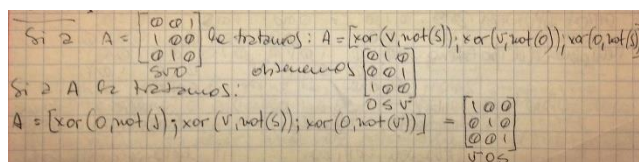 Si a A = [0 0 1 / 1 0 0 / 0 1 0] le tratamos: A = [xor(V,not(S)); xor(V,not(O)); xor(O,not(S)
SVO obtenemos [0 1 0 / 0 0 1 / 1 0 0]
Si a A le tratamos: OSV
A = [xor(O,not(S); xor(V,not(S)); xor(O,not(V))] = [1 0 0 / 0 1 0 / 0 0 1]
VOS